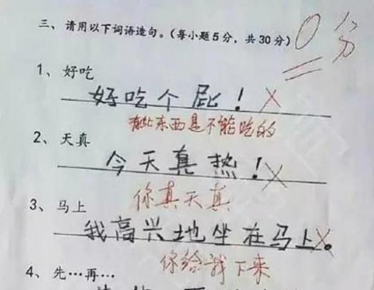 三、请用以下词语造句。(每小题5分，共30分) 0分
1、好吃
好吃个屁！×
有些东西是不能吃的
2、天真
今天真热！×
你真天真
3、马上
我高兴地坐在马上。×
你给我下来
4、先…再…